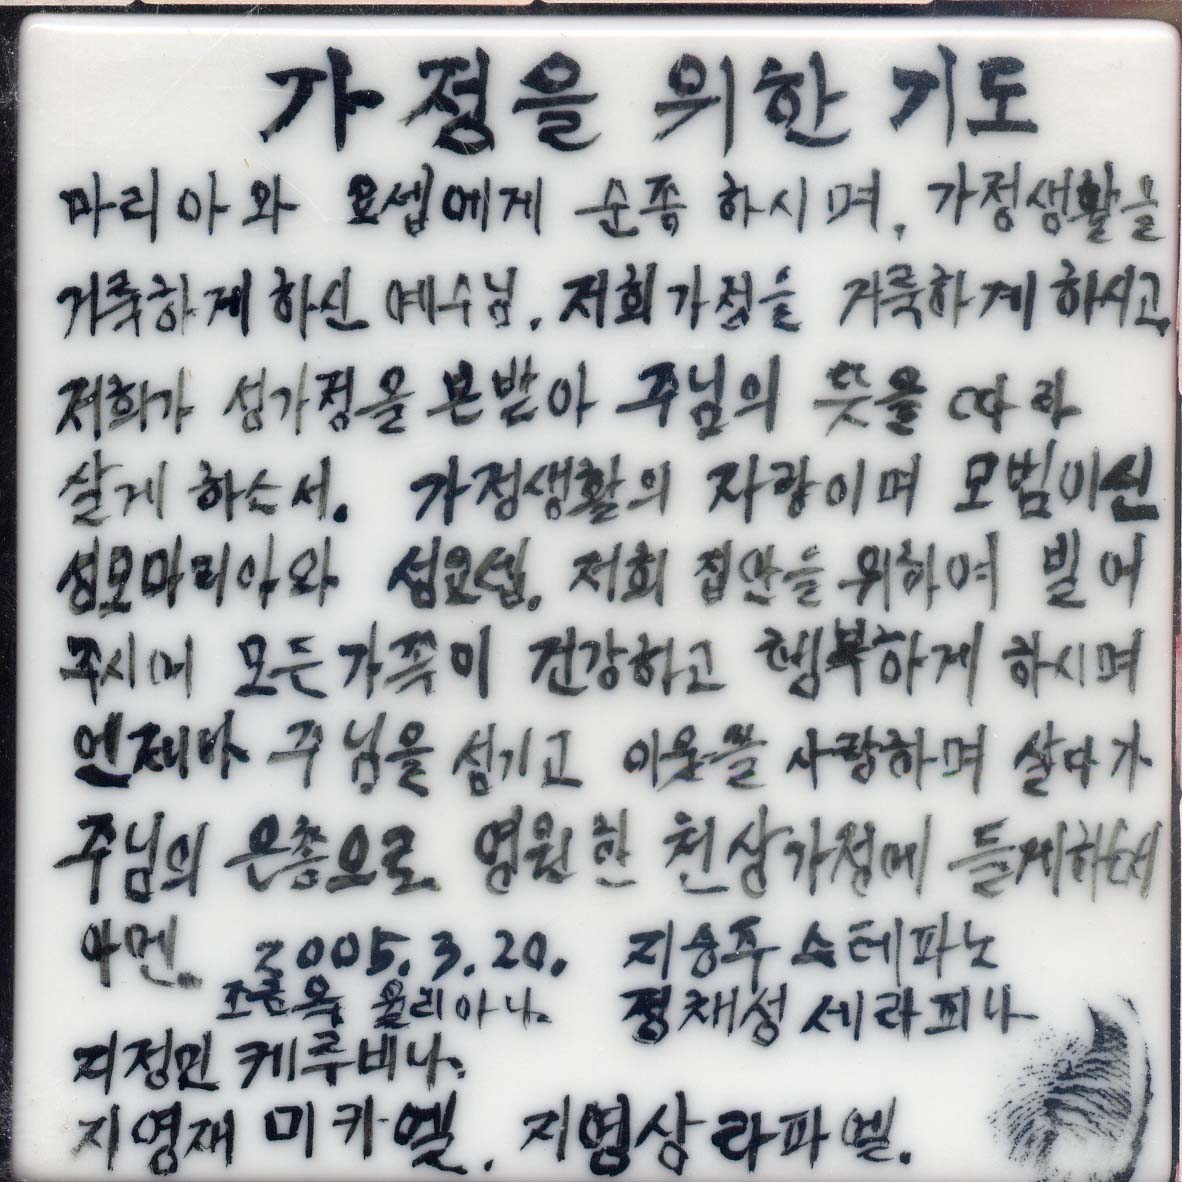 가정을 위한 기도
마리아와 요셉에게 순종 하시며, 가정생활을
거룩하게 하신 예수님, 저희가정을 거룩하게 하시고,
저희가 성가정을 본받아 주님의 뜻을 따라
살게 하소서. 가정생활의 자랑이며 모범이신
성모마리아와 성요셉, 저희 집안을 위하여 빌어
주시어 모든가족이 건강하고 행복하게 하시며
언제나 주님을 섬기고 이웃을 사랑하며 살다가
주님의 은총으로 영원한 천상가정에 들게하소서
아멘. 2005.3.20. 지승주 스테파노
율리아나. 정채성 세라피나
지정민 케루비나.
지영재 미카엘, 지영상 라파엘.